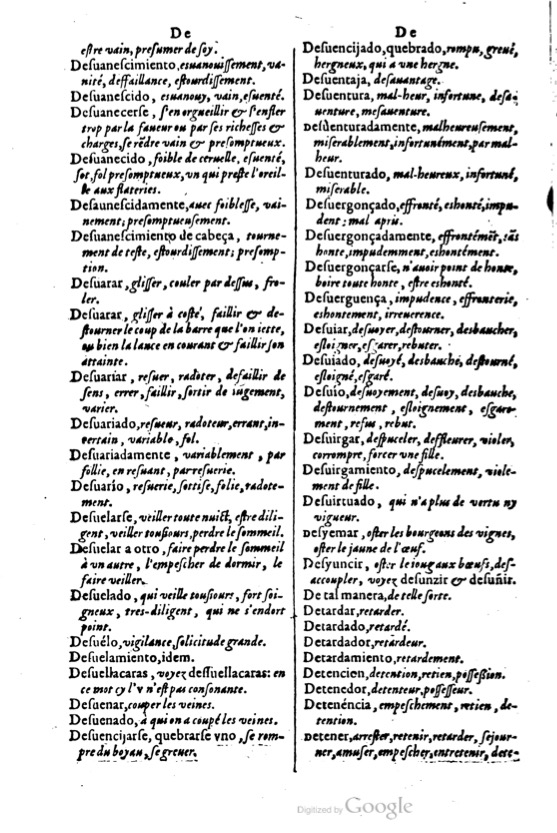 De
estre vain, presumer de soy.
Desuanescimiento, esuanouissement, va-
nité, deffaillance, estourdissement.
Desuanescido, esuanouy, vain, esuenté.
Desuanecerse, s'en orgueillir & s'enfler
trop par la faueur ou par ses richesses &
charges, se rẽdre vain & presomptueux.
Desuanecido, foible de ceruelle, esuenté,
sot, fol presomptueux, un qui preste l'oreil-
le aux flateries.
Desaunescidamente, auec foiblesse, vai-
nement; presomptueusement.
Desuanescimiento de cabeça, tourne-
ment de teste, estourdissement; presomp-
tion.
Desuarar, glisser, couler par dessus, fro-
ler.
Desuarar, glisser à costé, faillir & de-
stourner le coup de la barre que l'on iette,
ou bien la lance en courant & faillir son
attainte.
Desuariar, resuer, radoter, defaillir de
sens, errer, faillir, sortir de iugement,
varier.
Desuariado, resueur, radoteur, errant, in-
certain, variable, fol.
Desuariadamente, variablement, par
follie, en resuant, par resuerie.
Desuario, resuerie, sottise, folie, radote-
ment.
Desuelarse, veiller toute nuict, estre dili-
gent, veiller tousiours, perdre le sommeil.
Desuelar a otro, faire perdre le sommeil
à un autre, l'empescher de dormir, le
faire veiller.
Desuelado, qui veille tousiours, fort soi-
gneux, tres-diligent, qui ne s'endort
point.
Desuélo, vigilance, solicitude grande.
Desuelamiento, idem.
Desuellacaras, voyez dessuellacaras: en
ce mot cy l'v n'est pas consonante.
Desuenar, couper les veines.
Desuenado, à qui on a coupé les veines.
Desuencijarse, quebrarse vno, se rom-
pre du boyau, se greuer.
De
Desuencijado, quebrado, rompu, greué,
hergneux, qui a une hergne.
Desuentaja, desauantage.
Desuentura, mal-heur, infortune, desa-
uenture, mesauenture.
Desuenturadamente, malheureusement,
miserablement, infortunément, par mal-
heur.
Desuenturado, mal-heureux, infortuné,
miserable.
Desuergonçado, effronté, eshonté, impu-
dent; mal apris.
Desuergonçadamente, effrontémẽt, sãs
honte, impudemment, eshontément.
Desuergonçarse, n'auoir point de honte,
boire toute honte, estre eshonté.
Desuerguença, impudence, effronterie,
eshontement, irreuerence.
Desuiar, desuoyer, destourner, desbaucher,
esloigner, esgarer, rebuter.
Desuiado, desuoyé, desbauché, destourné,
esloigné, esgaré.
Desuio, desuoyement, desuoy, desbauche,
destournement, esloignement, esgare-
ment, refus, rebut.
Desuirgar, despuceler, deffleurer, violer,
corrompre, forcer une fille.
Desuirgamiento, despucelement, viole-
ment de fille.
Desuirtuado, qui n'a plus de vertu ny
vigueur.
Desyemar, oster les bourgeons des vignes,
oster le jaune de l'œuf.
Desyuncir, oster le ioug aux bœufs, des-
accoupler, voyez desunzir & desuñir.
De tal manera, de telle sorte.
Detardar, retarder.
Detardado, retardé.
Detardador, retardeur.
Detardamiento, retardement.
Detencien, detention, retien, possession.
Detenedor, detenteur, possesseur.
Detenéncia, empeschement, retien, de-
tention.
Detener, arrester, retenir, retarder, sejour-
ner, amuser, empescher, entretenir, dete-
Digitized by Google